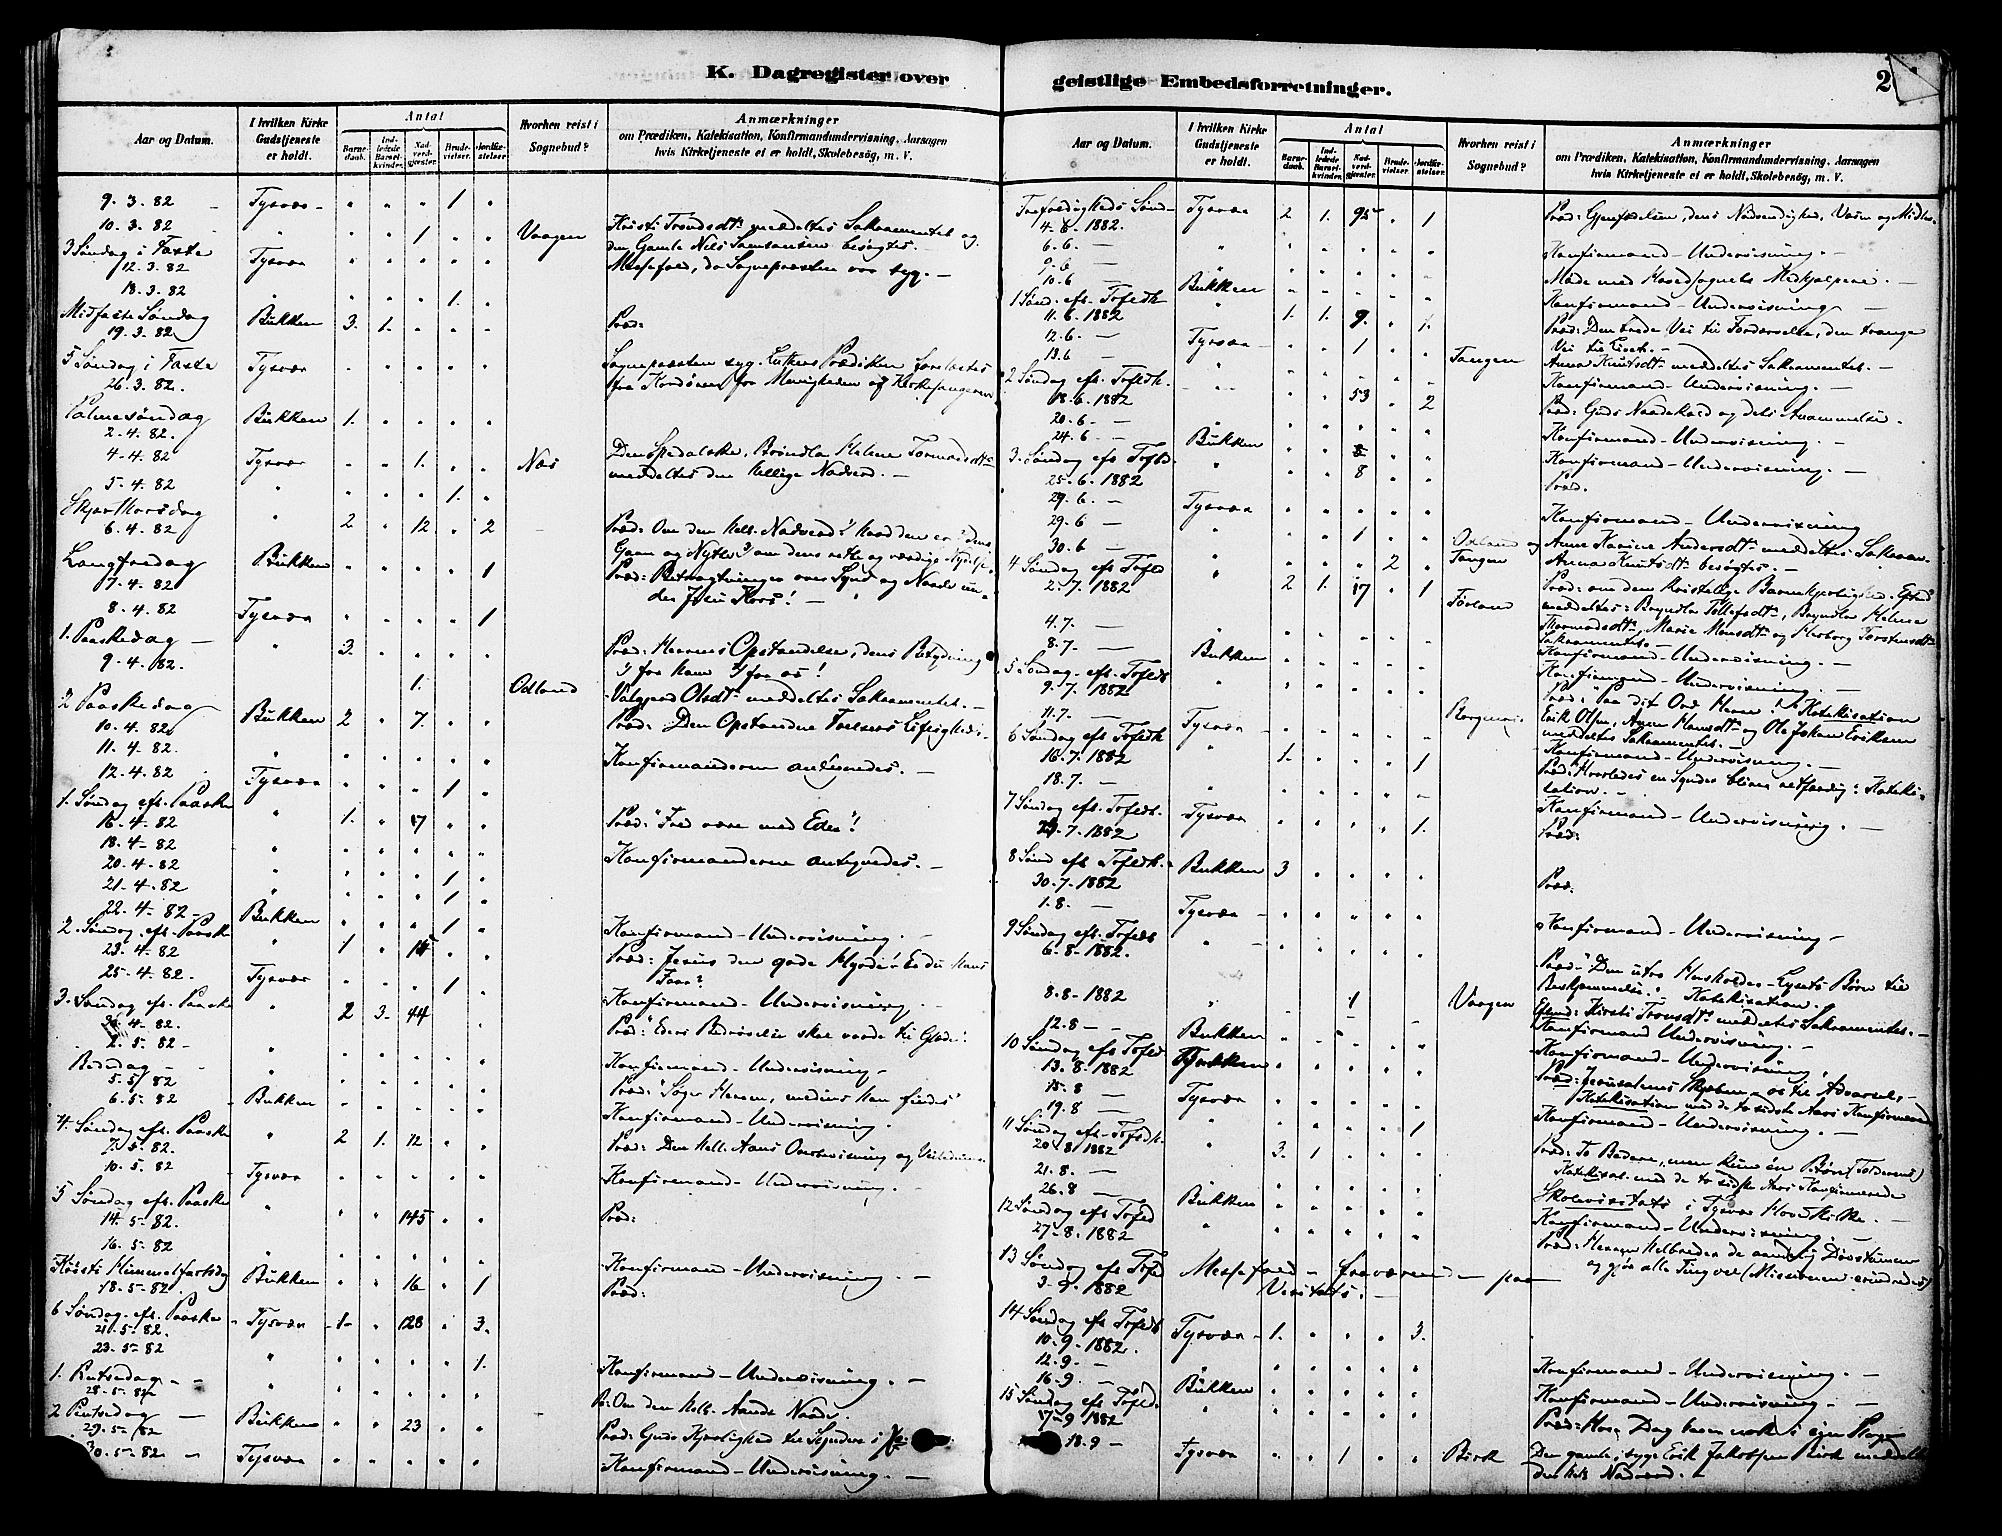 K. Dagregister over
Aar og Datum.
I hvilken Kirke Gudstjeneste er holdt.
Antal
Barnedaab.
Indledede Barselkvinder.
Nadverdgjester.
Brudevielser.
Jordfæstelser.
Hvorhen reist i Sognebud?
Anmærkninger
om Prædiken, Katekisation, Konfirmandundervisning, Aarsagen
hvis Kirketjeneste ei er holdt, Skolebesög, m. V.
9. 3. 82 Tysvær 1
10. 3. 82 1 Vaagen Kirsti Trondsdtr meddeltes Sakramentet og
den Gamle Nils Samsonsen besøgtes.
3 Søndag i Faste
12. 3. 82 Tysvær Messefald, da Sognepræsten var syg. —
18. 3. 82 1.
Midfaste Søndag Bukken 3. 1. Præd:
19. 3. 82
5 Søndag i Faste Tysvær Sognepræsten syg. Luthers Prædiken forelæstes
26. 3. 82. fra Kordøren for Menigheden af Kirkesangeren
Palmesøndag Bukken 1.
2. 4. 82.
4. 4. 82 Tysvær 1. Næs Den Spedalske, Helene
5. 4. 82 1. meddeltes den hellige Nadverd. —
Skjærthorsdag
6. 4. 82 2 12 2 Præd: Om den hell. Nadverd? hvad den er? dens
Langfredag Bukken 1 Gavn og Nytte? om dens rette og værdige Nydelse.
7. 4. 82 Præd: Betragtninger over Synd og Naade un-
8. 4. 82 Tysvær 1 der Jesu Kors! —
1. Paaskedag — 3. Præd: Herrens Opstandelse, dens Betydning
9. 4. 82. for ham for os!
1. Odland Valgjerd Olsdtr meddeltes Sakramentet. —
2 Paaskedag Bukken 2 7. Præd: Den Opstandne Frelsers
10. 4. 82
11. 4. 82. Konfirmanderne antegnedes. —
12. 4. 82 Tysvær 1
1. Søndag eft. Paaske
16. 4. 82 1. 17 Præd: "Fred være med Eder"!
18. 4. 82 Konfirmanderne antegnedes. —
20. 4. 82
21. 4. 82 1
22. 4. 82 Bukken 1
2. Søndag eft. Paaske Konfirmand-Undervisning. —
23. 4. 82 1 Præd: Jesus den gode Hyrde! Er du Hans
25. 4. 82. Tysvær 1 Faar?
3. Søndag eft. Paaske 2 3. 44 Konfirmand-Undervisning. —
30. 4. 82. Præd: "Eders Bedrøvelse skal vorde til Glæde".
2. 5. 82 Konfirmand-Undervisning —
Bededag
5. 5. 82 Præd: "Søger Herren, medens han findes"
6. 5. 82 Bukken Konfirmand-Undervisning.
4. Søndag eft. Paaske 2 1. 12 Præd: Den Hell. Aands Overbevisning og
7. 5. 82.
10. 5. 82 Tysvær Konfirmand-Undervisning. —
5 Søndag eft. Paaske
14. 5. 82. 145 Præd:
16. 5. 82 Konfirmand-Undervisning. —
Kristi Himmelfartsdag Bukken 16 1
18. 5. 82. Præd:
6 Søndag eft. Paaske Tysvær 1 128 3.
21. 5. 82.
23. 5. 82 1. Konfirmand-Undervisning. —
1. Pintsedag — Om den Hell. Aands Naade.
28. 5. 82
2 Pintsedag — Bukken 23 Præd: Guds Kjærlighed til Syndere i
29. 5. 82
30. 5. 82 Tysvær Konfirmand-Undervisning. —
geistlige Embedsforretninger.
2
Aar og Datum.
I hvilken Kirke Gudstjeneste er holdt.
Antal
Barnedaab.
Indledede Barselkvinder.
Nadverdgjester.
Brudevielser.
Jordfæstelser.
Hvorhen reist i Sognebud?
Anmærkninger
om Prædiken, Katekisation, Konfirmandundervisning, Aarsagen
hvis Kirketjeneste ei er holdt, Skolebesög, m. V.
Trefoldigheds Sønd- Tysvær 2 1. 95 1 Præd: Gjenfødelsen, dens Nødvendighed, Væsen og
4. 6. 1882.
6. 6. — Konfirmand-Undervisning. —
9. 6 — Møde med Hovedsognets Medhjælpere. —
10. 6 — Bukken Konfirmand-Undervisning
1 Sønd. eft. Trefdh. 1. 1. 9. 1. Præd: Den brede Vei til Fordærvelse, den trange
11. 6. 1882 Vei til Livet. —
12. 6. — Tysvær 1 Tangen Anna Knutsdtr meddeltes Sakramentet. —
13. 6 — Konfirmand-Undervisning. —
2 Søndag eft. Trefdh. 53 2 Præd: Guds Naadekald og dets Anammelse.
18. 6. 1882
20. 6. — Konfirmand-Undervisning. —
24. 6 — Bukken Konfirmand-Undervisning. —
3. Søndag eft. Trefdh. 8 Præd.
25. 6. 1882
29. 6 — Tysvær Konfirmand-Undervisning
29. 6 — 1 Odland og Anne Karine Andersdtr meddeltes Sakram.
30. 6 — 2 Tangen Anna Knutsdtr besøgtes. —
4 Søndag eft. Trefd 2 1. 17 1 Præd: om den kristelige
2. 7. 1882 Førland meddeltes: Helene
4. 7. — Marie Monsdtr og Herborg Torstensdtr
8. 7. — Bukken Sakramentet. —
Konfirmand-Undervisning. —
5 Søndag eft. Trefdh Konfirmand-Undervisning. —
9. 7. 1882 Præd: "Paa dit Ord Herre!" Katekisation
11. 7. — Tysvær Erik Olsen, Hansdtr og Ole Johan Eriksen
6 Søndag eft. Trefdh meddeltes Sakramentet. —
16. 7. 1882 1. 1 Konfirmand-Undervisning. —
18. 7. — Præd: "Hvorledes en Synder bliver retfærdig": Kateki-
sation. —
7 Søndag eft. Trefdh. Tysvær 1. Konfirmand-Undervisning. —
23. 7. 1882 Præd:
8 Sønd eft Trefdh. Bukken 3 Præd:
30. 7. 1882
1. 8. — Tysvær Konfirmand-Undervisning —
9 Søndag eft. Trefdh
6. 8. 1882. Præd: "Den utro Husholder - Lysets Børn til
Beskjæmmelse". Katekisation.
8. 8. 1882 1 Vaagen Kirsti Trondsdtr meddeltes Sakramentet. —
12. 8 — Bukken Konfirmand Undervisning. —
10 Søndag eft Trefdh. Konfirmand-Undervisning.
13. 8. 1882 Præd: Jerusalems Skjæbne os til Advarsel. —
15. 8 — Tysvær Katekisation med de to sidste Aars Konfirmerede
19. 8 — 1 Konfirmand-Undervisning. —
11 Søndag eft. Trefdh. 3. 1 Præd: To Bedere, men kun én Bøn
20. 8. 1882 Katekisat. med de to sidste Aars Konfirmerede
21. 8. — Skolevisitats i Tysvær Hoved Kirke. —
26. 8 — Bukken Konfirmand-Undervisning. —
12 Søndag eft Trefd
27. 8. 1882 Præd: Herren helbreder de aandelig Døvstumme
og gjør alle Ting vel (Missionen erindredes)
13 Søndag eft Trefd Messefald - fraværende paa
3. 9. 1882 Visitats. —
14 Søndag eft Trefdh Tysvær 1. 3.
10. 9. 1882.
12. 9. — Konfirmand-Undervisning. —
16. 9. — Bukken Konfirmand-Undervisning. —
15 Søndag eft Trefd.
17. 9. 1882 Præd: Hver Dag haver nok i egen Plage
18. 9 — Tysvær 1 Birk Den gamle, syge Erik Jakobsen Birk meddeltes
den hell. Nadverd. —